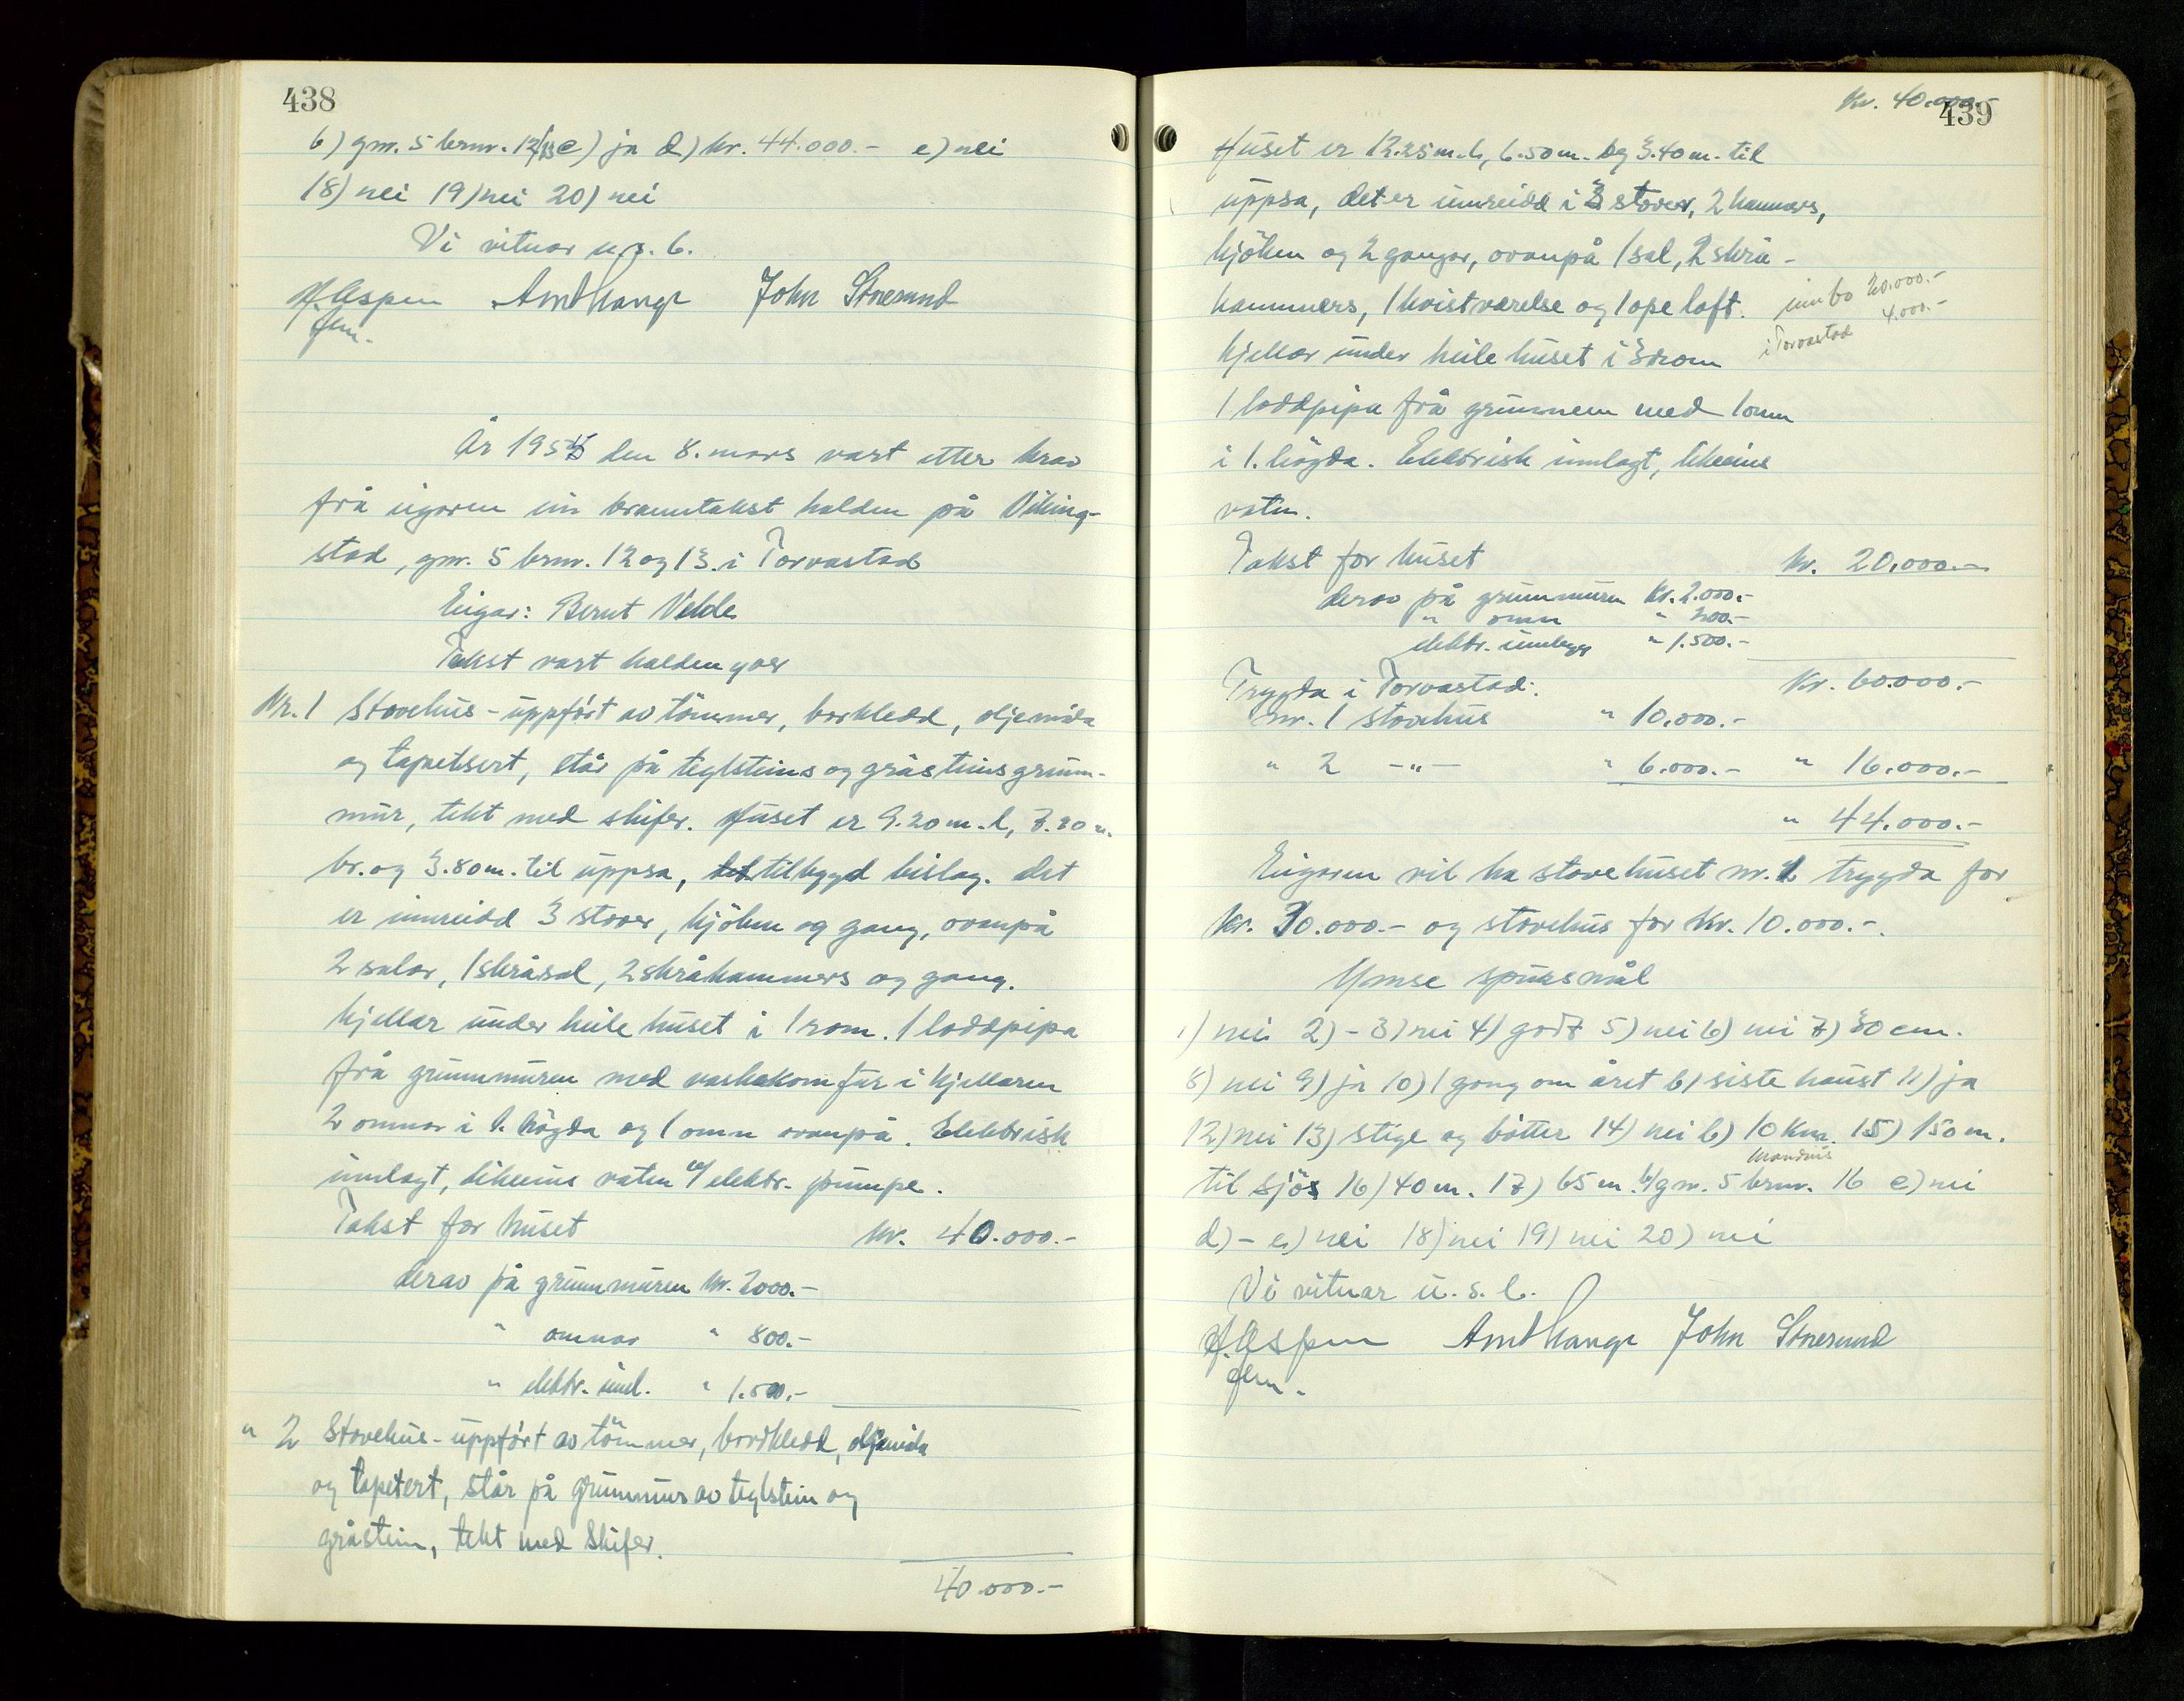 438
b) gnr. 5 brnr. 12/13 c) ja d) kr. 44.000.- e) nei
18) nei 19) nei 20) nei
Vi vitnar u.s.b.
H. Aspen Amthauge John Storesund
fm.
År 1955 den 8. mars vart etter krav
frå eigaren ein branntakst halden på Viking-
stad, gnr. 5 brnr. 12 og 13 i Torvastad
Eigar: Bernt Velde
Takst vart halden yver
Nr. 1 Stovehus - uppført av tømmer, borkledd, oljemåla
og tapetsert, står på teglsteins og gråsteinsgrunn-
mur, tekt med skifer. Huset er 9.20 m. l, 7.20 m.
br. og 3.80 m. til uppsa, tilbygd bislag. det
er innreidd 3 stover, kjøken og gang, ovanpå
2 salar, 1 skråsal, 2 skråkammers og gang.
Kjellar under heile huset i 1 rom. 1 loddpipa
frå grunnmuren med vaskekomfur i kjellaren
2 omnar i 1. høgda og 1 omn ovanpå. Elektrisk
innlagt, likeeins vatn m/ elektr. pumpe.
Takst for huset kr. 40.000.-
derav på grunnmuren kr. 2000.-
" omnar " 800.-
" elektr. innl. " 1.500.-
" 2 Stovehus - uppført av tømmer, bordkledd, oljemåla
og tapetert, står på grunnmur av teglstein og
gråstein, tekt med skifer.
40.000.-
Kr. 40.000.-
439
Huset er 12.25 m. l, 6.50 m. b og 3.40 m. til
uppsa, det er innreidd i 3 stover, 2 kammers,
kjøken og 2 gangar, ovanpå 1 sal, 2 skrå-
kammers, 1 kvistværelse og 1 ope loft. innbo 20.000.-
i Torvastad 4.000.-
Kjellar under heile huset i 3 rom
1 loddpipa frå grunnen med 1 omn
i 1. høgda. Elektrisk innlagt, likeeins
vatn.
Takst for huset kr. 20.000.-
derav på grunnmuren kr. 2.000.-
" omn " 200.-
elektr. innlegg " 1.500.-
Trygda i Torvastad: Kr. 60.000.-
nr. 1 stovehus " 10.000.-
" 2 -"- " 6.000.- " 16.000.-
" 44.000.-
Eigaren vil ha stovehuset nr. 1 trygda for
kr. 30.000.- og stovehus for kr. 10.000.-.
Ymse spursmål
1) nei 2) - 3) nei 4) godt 5) nei 6) nei 7) 30 cm.
8) nei 9) ja 10) 1 gong om året b) siste haust 11) ja
12) nei 13) stige og bøtter 14) nei b) 10 km. 15) 150 m.
til sjøs 16) 40 m. 17) 65 m. b) gnr. 5 brnr. 16 c) nei
d) - e) nei 18) nei 19) nei 20) nei
Vi vitnar u.s.b.
H. Aspen Amthauge John Storesund
fm.